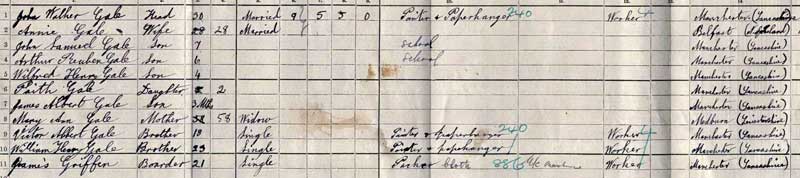 1 John Walter Gale Head 30 Married 9 5 5 0 Painter + Paperhanger 240 Worker Manchester (Lancashire
2 Annie Gale Wife 28 28 Married Belfast
3 John Samuel Gale Son 7 School Manchester (Lancashire)
4 Arthur Reuben Gale Son 6 School Manchester (Lancashire)
5 Wilfred Henry Gale Son 4 Manchester (Lancashire)
6 Faith Gale Daughter 2 Manchester (Lancashire)
7 James Albert Gale Son 3 Mths Manchester (Lancashire)
8 Mary Ann Gale Mother 58 58 Widow
9 Victor Albert Gale Brother 19 Single Painter + paperhanger 240 Worker Manchester (Lancashire)
10 William Henry Gale Brother 23 Single Painter + paperhanger Worker Manchester (Lancashire)
11 James Griffen Boarder 21 Single Packer cloth 886 Worker Manchester (Lancashire)